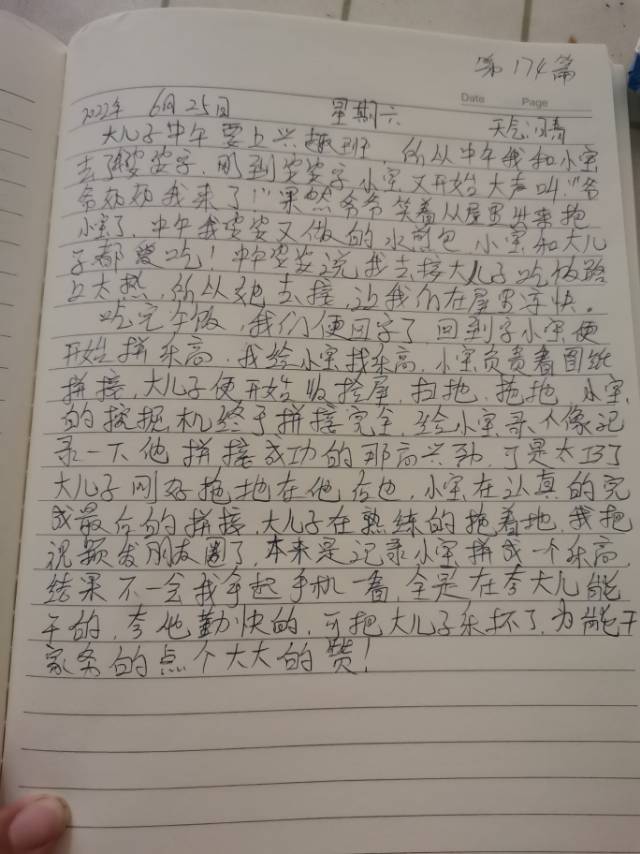 第174篇
Date Page
2022年 6月25日 星期六 天气:晴
大儿子中午要上兴趣班,所以中午我和小宝
去了婆婆家,刚到婆婆家,小宝又开始大声叫:“爷
爷奶奶我来了!”果然爷爷笑着从屋里出来抱
小宝了,中午我婆婆又做的水煎包,小宝和大儿
子都爱吃!中午婆婆说我去接大儿子吃饭路
上太热,所以她去接,让我们在屋里凉快。
吃完午饭,我们便回家了,回到家小宝便
开始拼乐高,我给小宝找乐高,小宝负责看图纸
拼接,大儿子便开始收拾屋,扫地、拖地,小宝
的挖掘机终于拼接完全,给小宝录个像记
录一下他拼接成功的那高兴劲,可是太巧了
大儿子刚好拖地在他右边,小宝在认真的完
成最后的拼接,大儿子在熟练的拖着地,我把
视频发朋友圈了,本来是记录小宝拼成一个乐高,
结果不一会我拿起手机一看,全是在夸大儿能
干的,夸他勤快的,可把大儿子乐坏了,为能干
家务的点个大大的赞!